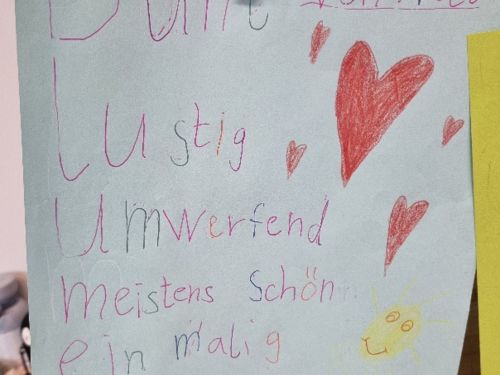 Bunt
Lustig
Umwerfend
meistens Schön
einmalig